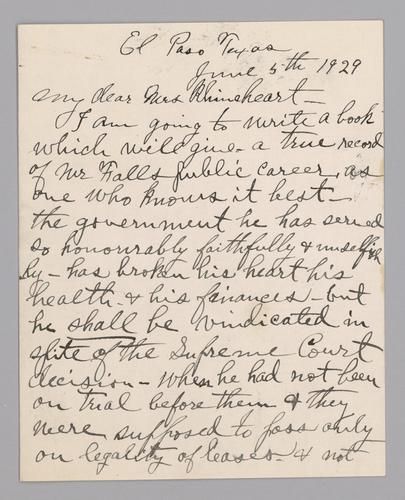 El Paso Texas
June 5th 1929
My dear Mrs Rhineheart -
I am going to write a book
which will give a true record
of Mr Falls public career, as
one who knows it best -
the government he has served
so honourably faithfully & unselfish
ly - has broken his heart his
health - & his finances - but
he shall be vindicated in
spite of the Supreme Court
decision - when he had not been
on trial before them & they
were supposed to pass only
on legality of leases - & not